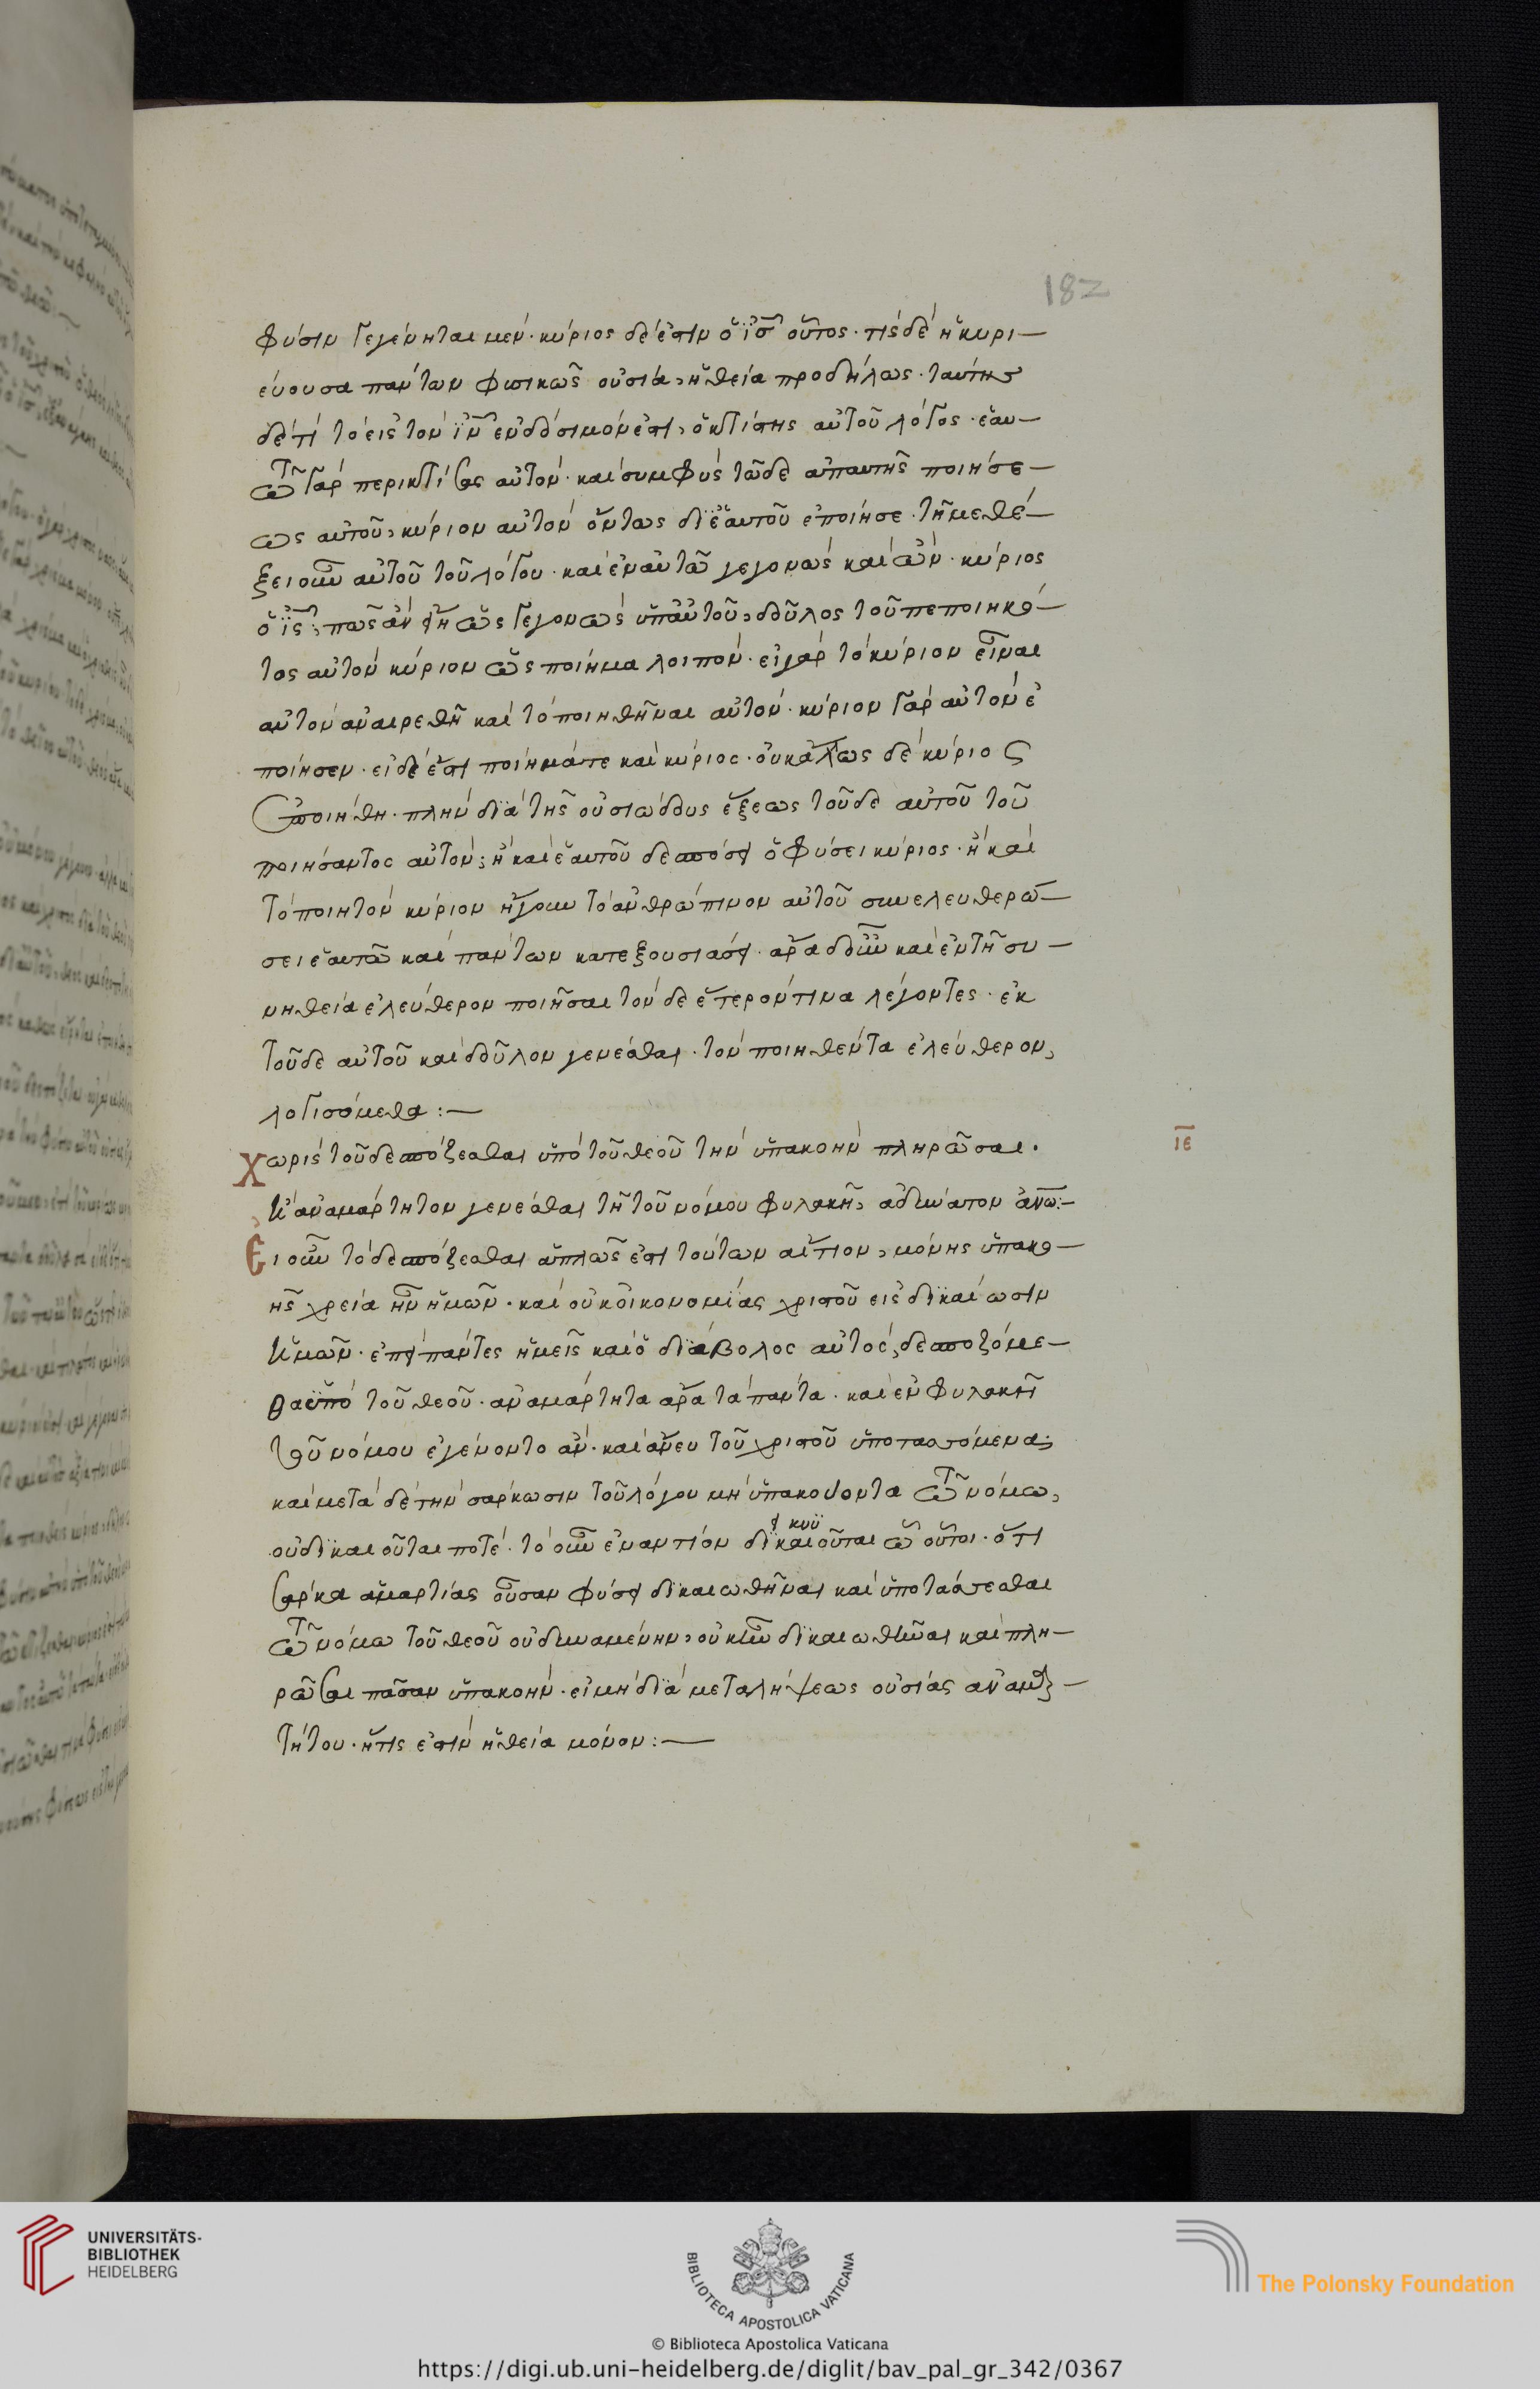 182
φύσιν γεγένηται μέν· κύριος δέ ἐστιν ὁ ἰς οὗτος· τίς δὲ ἡ κυρι-
εύουσα πάντων φυσικῶς οὐσία, ἡ θεία προδήλως· ταύτης
δέ τί τὸ εἰς τὸν ἰν ἐνδόσιμόν ἐστι, ὁ κτίστης αὐτοῦ λόγος· ἑαυ-
τῷ γὰρ περικτίσας αὐτόν· καὶ συμφυὲς τῶδε ἀπ αυτῆς ποιήσε-
ως αὐτοῦ, κύριον αὐτὸν ὄντως δι ἑαυτοῦ ἐποίησε· τῆ μεθέ-
ξει οὖν αὐτοῦ τοῦ λόγου· καὶ ἐν αὐτῶ γεγονὼς καὶ ὢν· κύριος
ὁ ἰς, πῶς ἂν εἴη ὡς γεγονὼς ὑπ αὐτοῦ, δοῦλος τοῦ πεποιηκό-
τος αὐτὸν κύριον ὡς ποίημα λοιπόν· εἰ γὰρ τὸ κύριον εἶναι
αὐτὸν ἀναιρεθῆ καὶ τὸ ποιηθῆναι αὐτόν· κύριον γὰρ αὐτὸν ἐ
ποίησεν· εἰ δέ ἐστι ποίημά τε καὶ κύριος· οὐκ ἄλλως δὲ κύριος
ἐποιήθη· πλὴν διὰ τῆς οὐσιώδους ἕξεως τοῦδε αὐτοῦ τοῦ
ποιήσαντος αὐτόν; ἢ καὶ ἑαυτοῦ δεσπόσει ὁ φύσει κύριος· ἢ καὶ
τὸ ποιητὸν κύριον ἤγουν τὸ ἀνθρώπινον αὐτοῦ συνελευθερώ-
σει ἑαυτῶ καὶ πάντων κατεξουσιάσει· ἄρα δοῦν καὶ ἐν τῆ συ-
νηθεία ἐλεύθερον ποιῆσαι τόνδε ἕτερόν τινα λέγοντες· ἐκ
τοῦδε αὐτοῦ καὶ δοῦλον γενέσθαι· τὸν ποιηθέντα ἐλεύθερον,
λογισόμεθα:-
Χωρὶς τοῦ δεσπόζεσθαι ὑπὸ τοῦ θεοῦ τὴν ὑπακοὴν πληρῶσαι.
ιε
ἢ ἀναμάρτητον γενέσθαι τῆ τοῦ νόμου φυλακῆ, ἀδύνατον ἀνω:-
Εἰ οὖν τὸ δεσπόζεσθαι ἁπλῶς ἐστι τούτων αἴτιον, μόνης ὑπακο-
ῆς χρεία ἦν ἡμῶν· καὶ οὐκ οἰκονομίας χριστοῦ εἰς δικαίωσιν
ἡμῶν· ἐπεὶ πάντες ἡμεῖς καὶ ὁ διάβολος αὐτός, δεσποζόμε-
θα ὑπὸ τοῦ θεοῦ· ἀναμάρτητα ἄρα τὰ πάντα· καὶ ἐν φυλακῆ
τοῦ νόμου ἐγένοντο ἄν· καὶ ἄνευ τοῦ χριστοῦ ὑποτασσόμενα;
καὶ μετὰ δὲ τὴν σάρκωσιν τοῦ λόγου μὴ ὑπακούοντα τῷ νόμω,
οὐ δικαιοῦται ποτέ· τὸ οὖν ἐναντίον δικαιοῦται ὦ οὗτοι· ὅτι
σάρκα ἁμαρτίας οὖσαν φύσει δικαιωθῆναι καὶ ὑποτάσσεσθαι
τῷ νόμω τοῦ θεοῦ οὐ δυναμένην, οὐκ ἦν δικαιωθῆναι καὶ πλη-
ρῶσαι πᾶσαν ὑπακοήν· εἰ μὴ διὰ μεταλήψεως οὐσίας ἀναμαρ-
τήτου· ἥτις ἐστὶν ἡ θεία μόνον:-
UNIVERSITÄTS-
BIBLIOTHEK
HEIDELBERG
BIBLIOTECA APOSTOLICA VATICANA
The Polonsky Foundation
© Biblioteca Apostolica Vaticana
https://digi.ub.uni-heidelberg.de/diglit/bav_pal_gr_342/0367